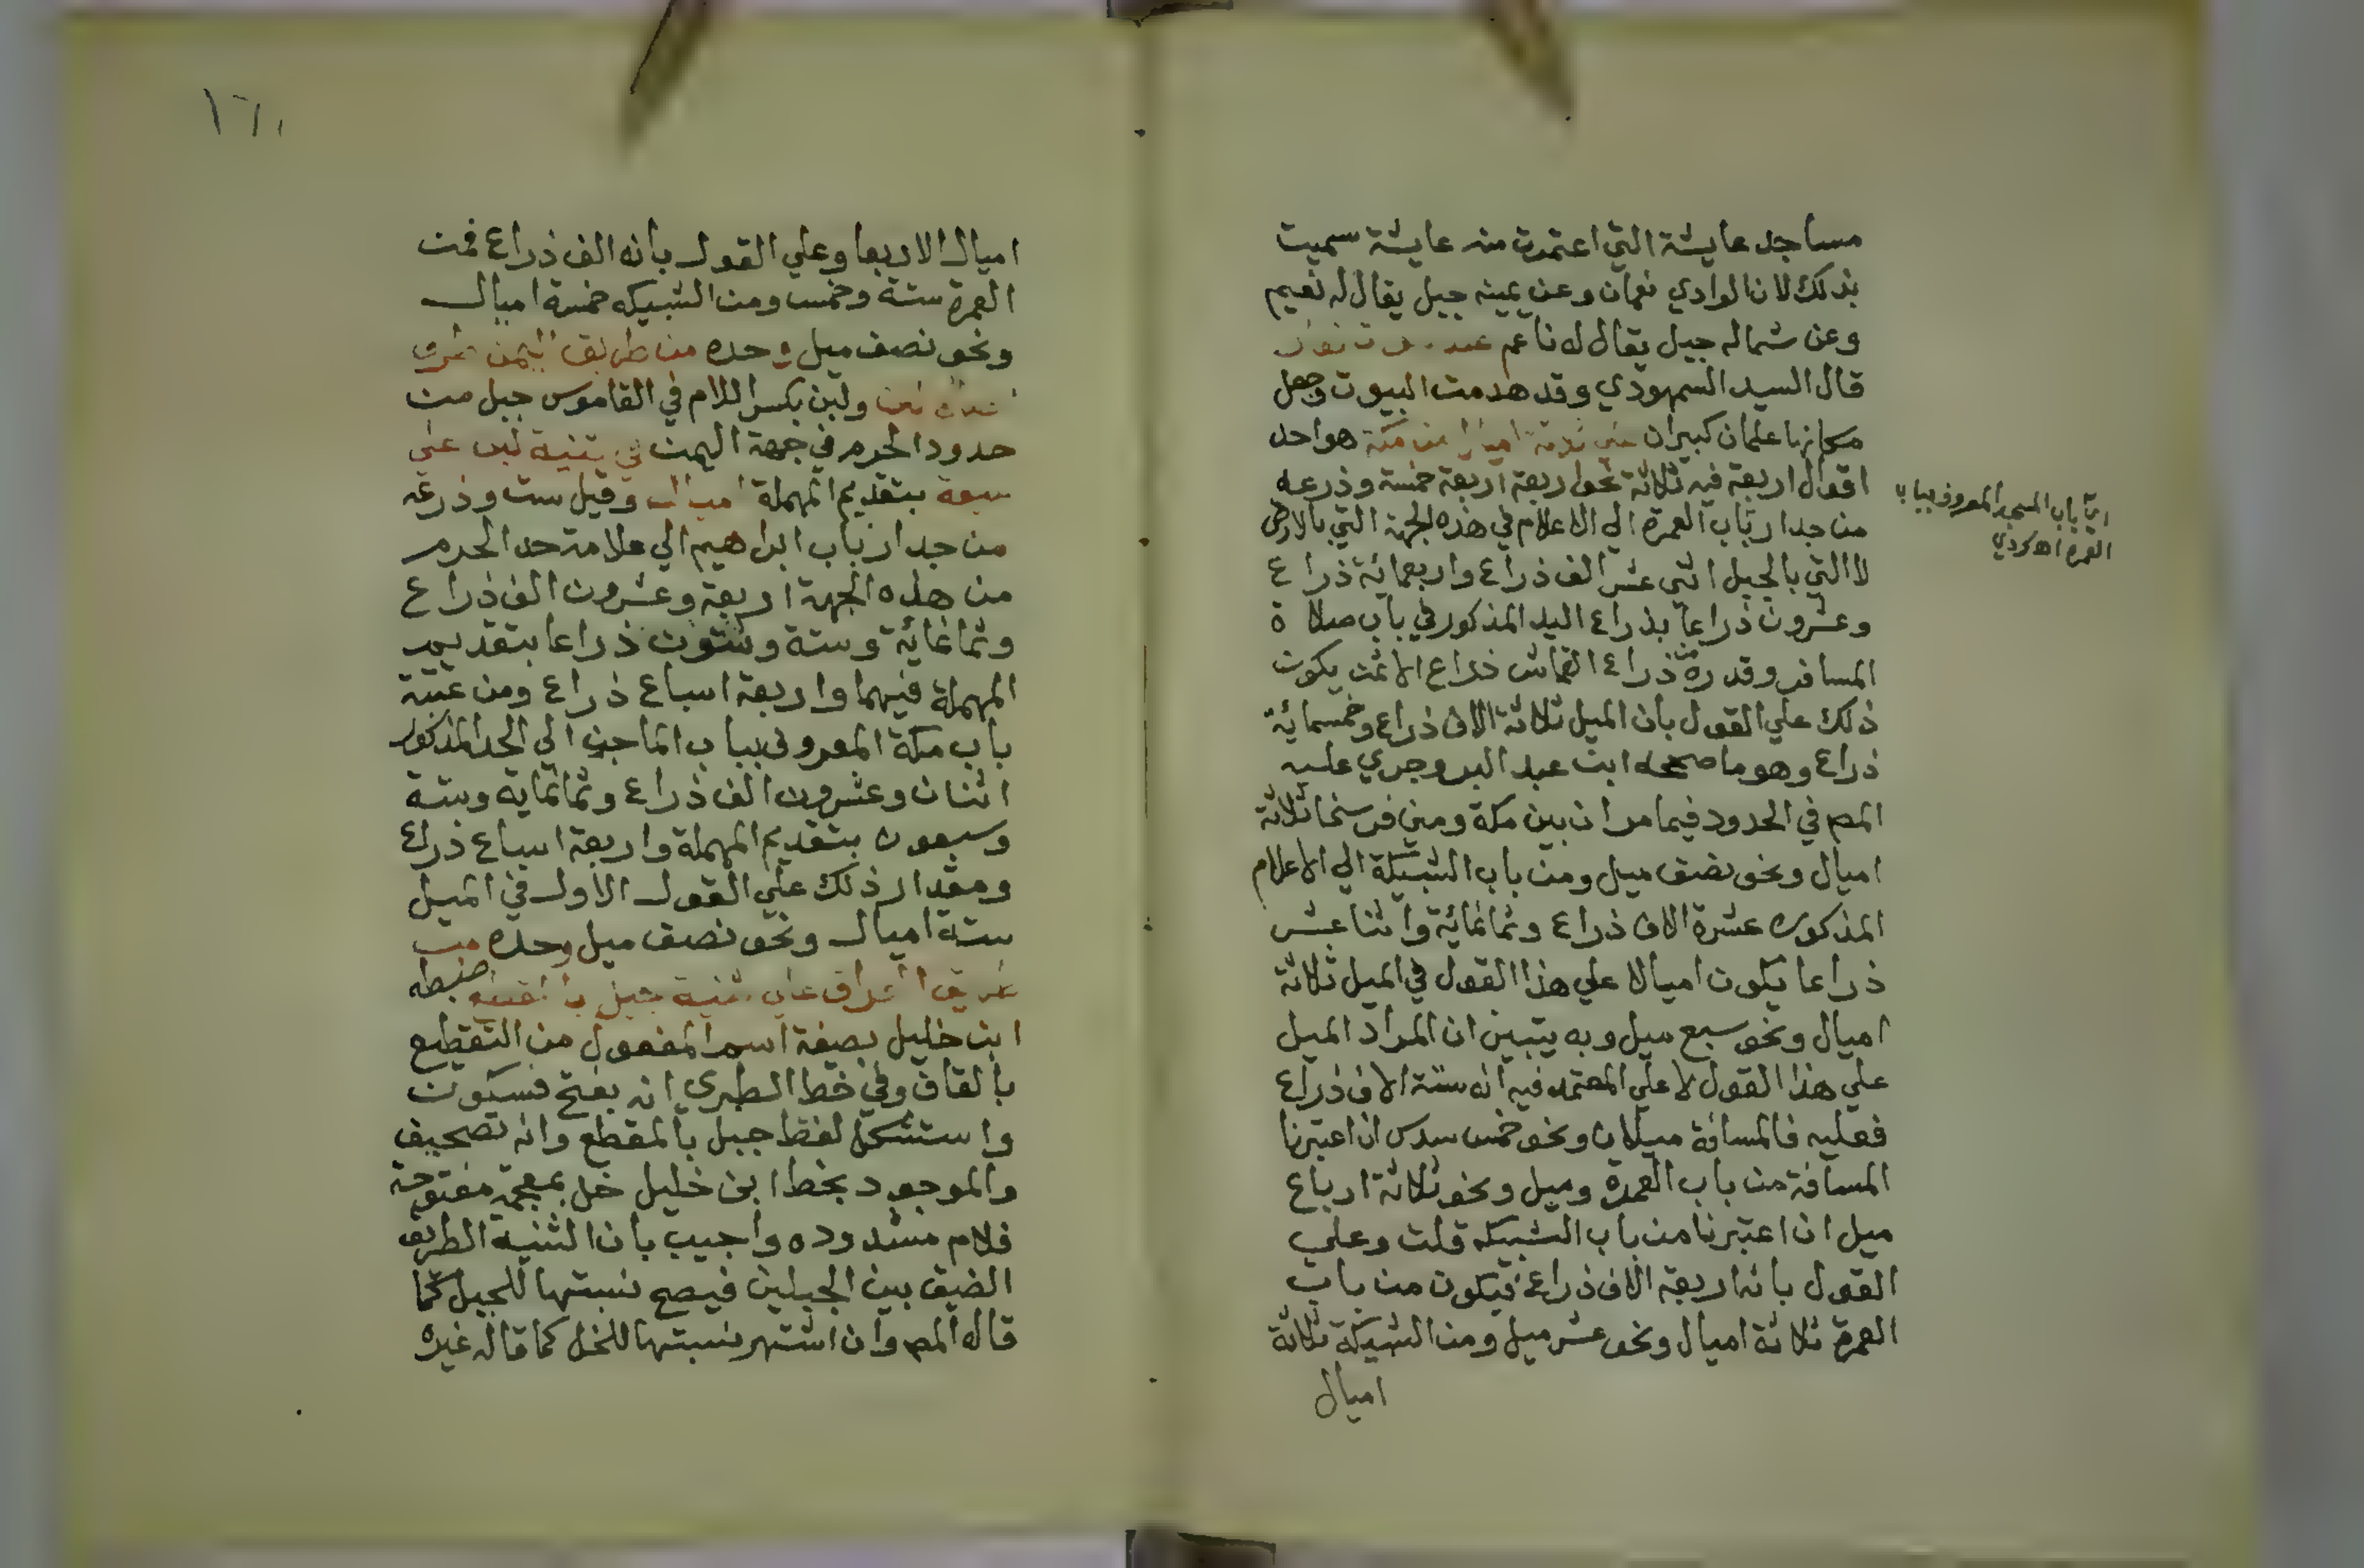 مساجد عايشة التي اعتمرت منه عايشة سميت
بذلك لان الوادي نعمان وعن يمينه جبل يقال له نعيم
وعن شماله جبل يقال له ناعم عند
قال السيد السمهودي وقد هدمت البيوت وجعل
مكانها علمان كبيران علي ثلاثة اميال من مكة هو احد
اقوال اربعة فيه ثلاثة نحو اربعة اربعة خمسة وذرعه
من جدار باب العمرة الي الاعلام في هذه الجهة التي بالارض
لا التي بالجبل اثني عشر الف ذراع واربعمائة ذراع
وعشرون ذراعا بذراع اليد المذكور في باب صلاة
المسافر وقدره من ذراع القماش ذراع الاثمن يكون
ذلك علي القول بان الميل ثلاثة الاف ذراع وخمسمائة
ذراع وهو ما صححه ابن عبد البر وجري عليه
المص في الحدود فيما مر ان بين مكة ومني فرسخا ثلاثة
اميال ونحو نصف ميل ومن باب الشبيكة الي الاعلام
المذكوره عشرة الاف ذراع وثمانمائة واثنا عشر
ذراعا يكون اميالا علي هذا القول في الميل ثلاثة
اميال ونحو سبع ميل وبه يتبين ان المراد الميل
علي هذا القول لا علي المعتمد فيه انه ستة الاف ذراع
فعليه فالمسافة ميلان ونحو خمس سدس ان اعتبرنا
المسافة من باب العمرة وميل ونحو ثلاثة ارباع
ميل ان اعتبرنا من باب الشبيكه قلت وعلي
القول بانه اربعة الاف ذراع فيكون من باب
العمرة ثلاثة اميال ونحو عشر ميل ومن الشبيكة ثلاثة
اميال
اي باب المسجد المعروف بباب
العمره اه كردي
١٦١
اميال الا ربعا وعلي القول بانه الف ذراع فمن
العمرة ستة وخمس ومن الشبيكه خمسة اميال
ونحو نصف ميل وحده من طريق اليمن طرف
لبن ولبن بكسر اللام في القاموس جبل من
حدود الحرم في جهة اليمن في ثنية لبن علي
سبعة بتقديم المهملة اميال وقيل ست وذرعه
من جدار باب ابراهيم الي علامة حد الحرم
من هذه الجهة اربعة وعشرون الف ذراع
وثمانمائة وستة وستون ذراعا بتقديم
المهملة فيهما واربعة اسباع ذراع ومن عتبة
باب مكة المعروف بباب الماجن الي الحد المذكور
اثنان وعشرون الف ذراع وثمانماية وستة
وسبعون بتقديم المهملة واربعة اسباع ذراع
ومقدار ذلك علي القول الاول في الميل
ستة اميال ونحو نصف ميل وحده من
طريق العراق علي ثنية جبل بالمقطع ضبطه
ابن خليل بصيغة اسم المفعول من التقطيع
بالقاف وفي خط الطبري انه بفتح فسكون
واستشكل لفظ جبل بالمقطع وانه تصحيف
والموجود بخط ابن خليل خل بمعجمة مفتوحة
فلام مشدوده واجيب بان الثنية الطريق
الضيق بين الجبلين فيصح نسبتها للجبل كما
قاله المص وان اشتهر نسبتها للخل كما قاله غيره